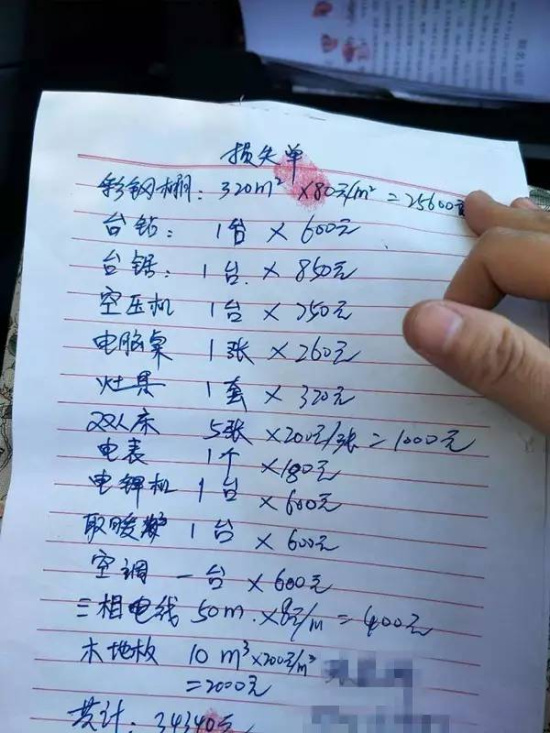 损失单
彩钢棚: 320m² ×80元/m² = 25600元
台钻: 1台 × 600元
台锯: 1台 × 850元
空压机 1台 × 250元
电脑桌 1张 ×260元
灶具 1套 × 320元
双人床 5张 ×200元/张 = 1000元
电表 1个 ×180元
电焊机 1台 ×600元
取暖炉 1台 × 600元
空调 一台 × 600元
三相电线 50m ×8元/m = 400元
木地板 10m³×200元/m³
=2000元
共计: 34340元